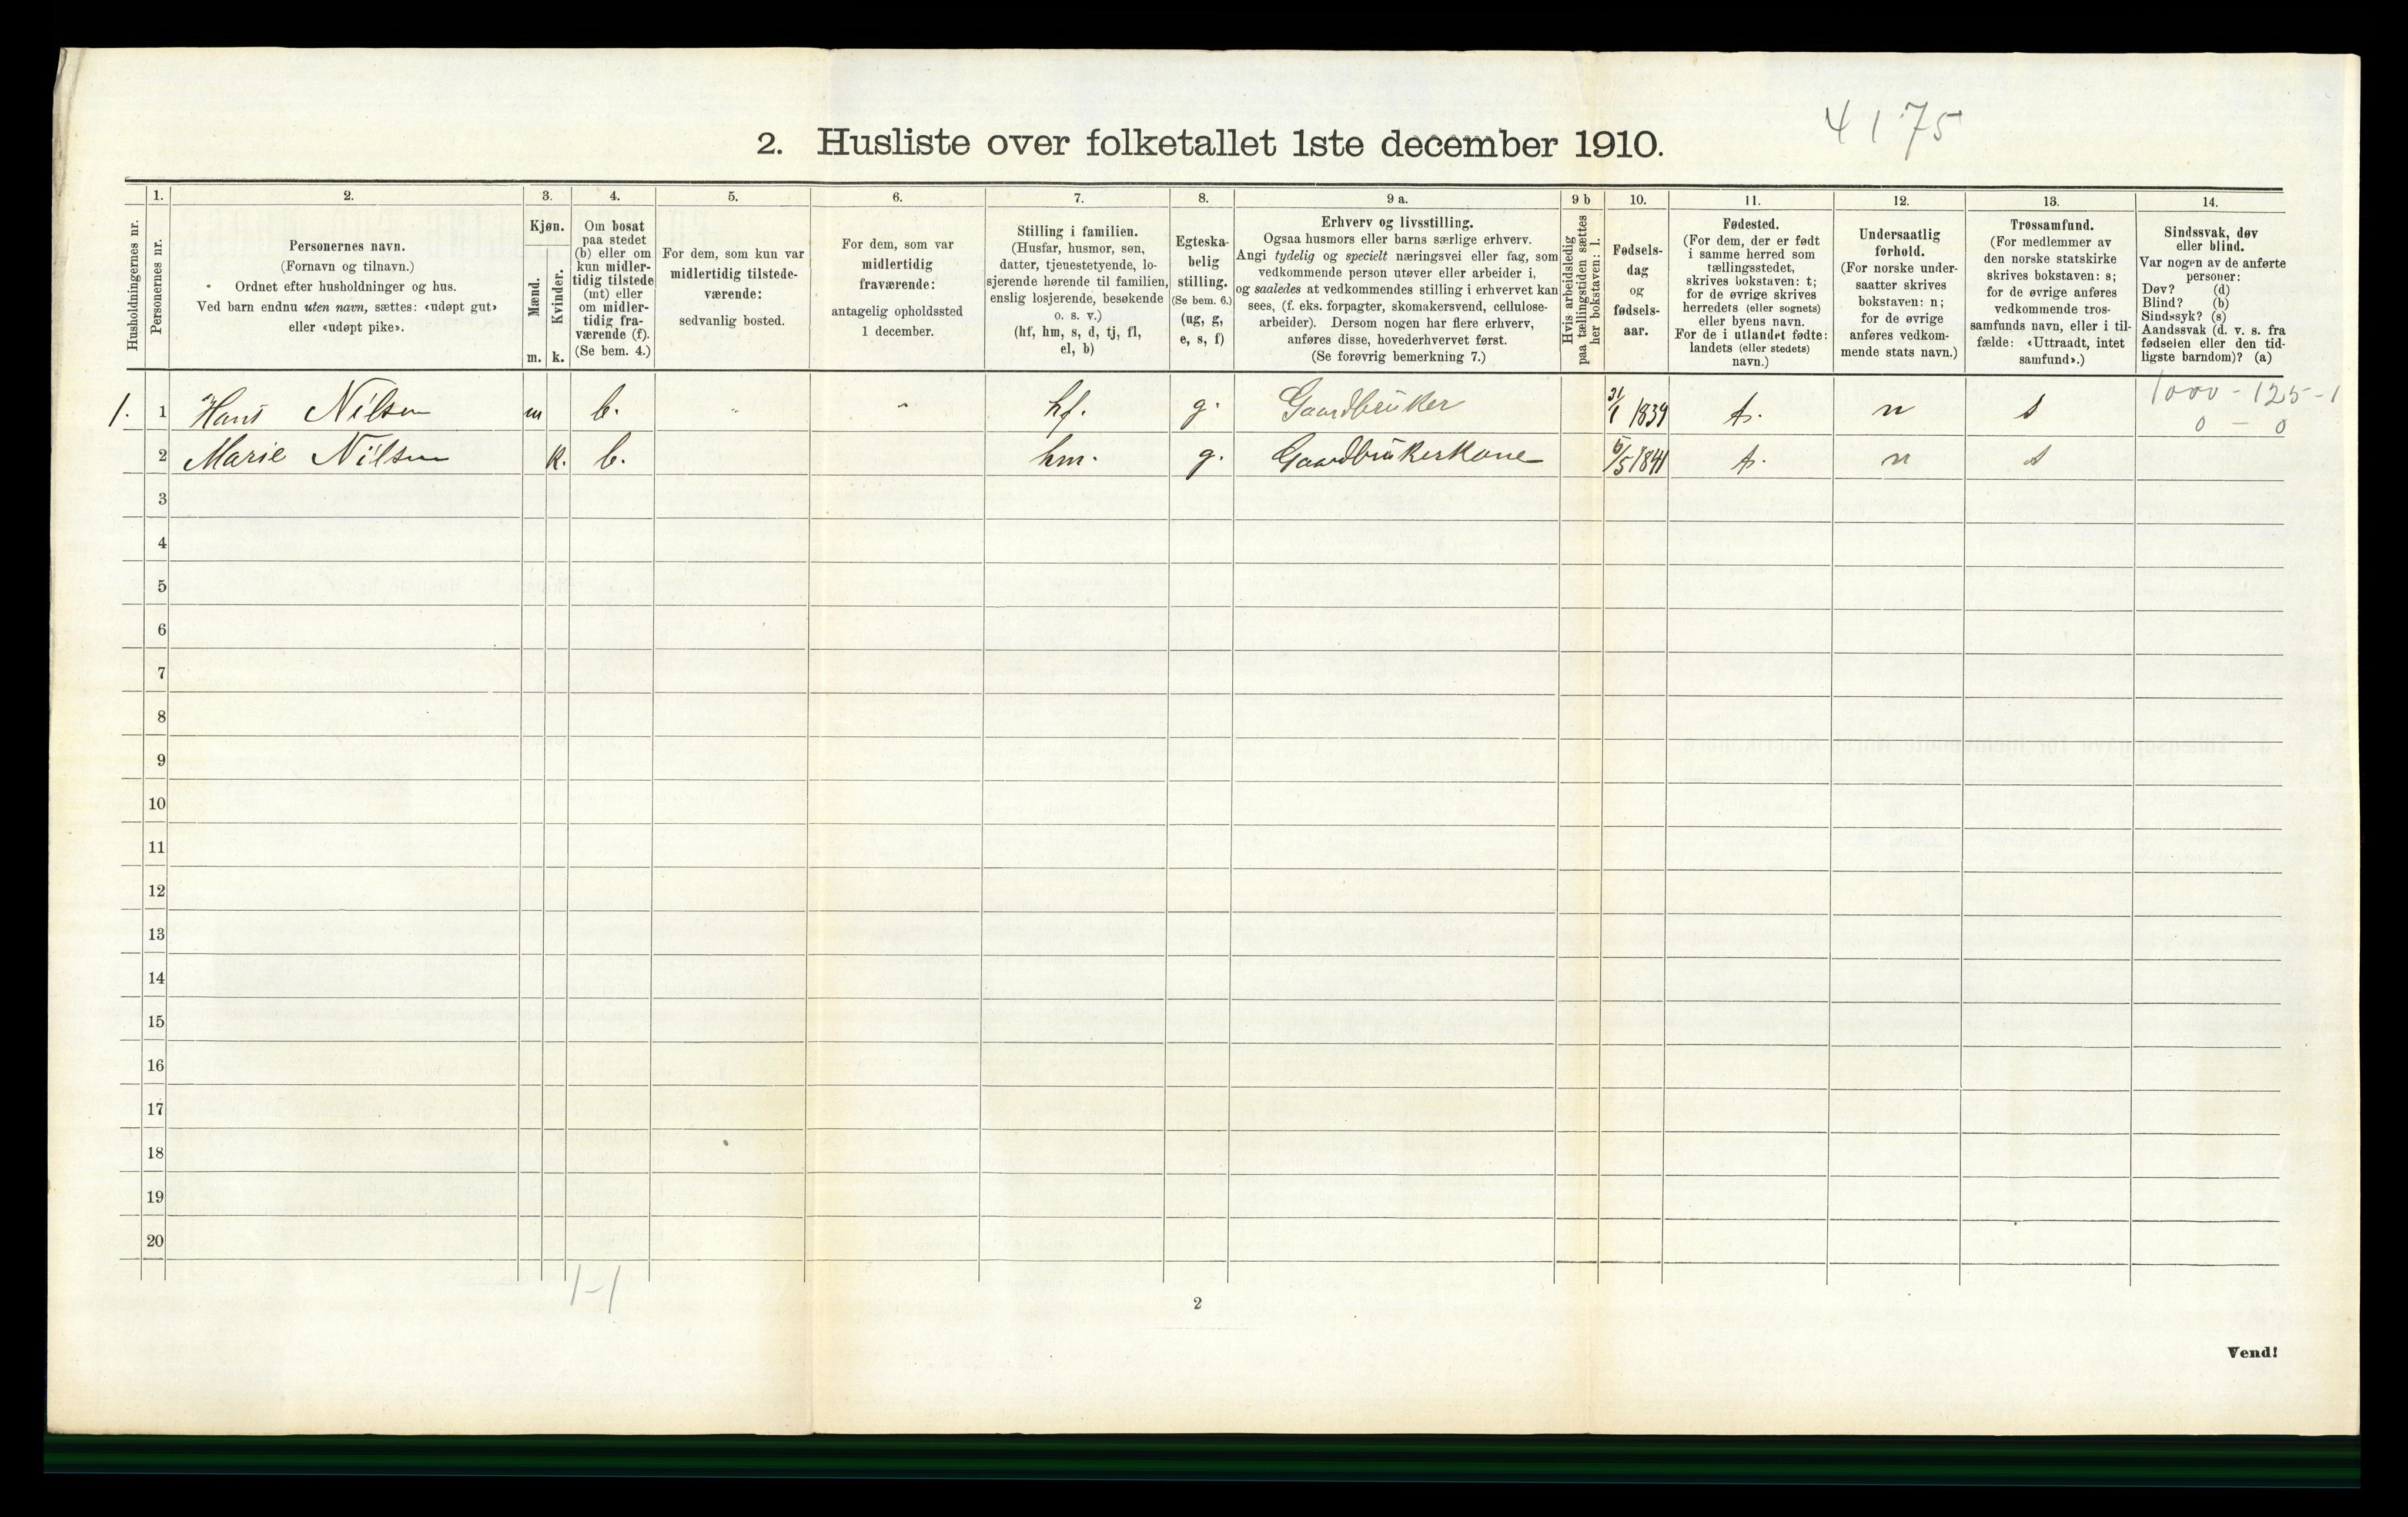 4175
2. Husliste over folketallet 1ste december 1910.
Husholdningernes nr.
1.
Personernes nr.
2.
Personernes navn.
(Fornavn og tilnavn.)
Ordnet efter husholdninger og hus.
Ved barn endnu uten navn, sættes: «udøpt gut»
eller «udøpt pike».
3.
Kjøn.
Mænd.
m.
Kvinder.
k.
4.
Om bosat
paa stedet
(b) eller om
kun midler-
tidig tilstede
(mt) eller
om midler-
tidig fra-
værende (f).
(Se bem. 4.)
5.
For dem, som kun var
midlertidig tilstede-
værende:
sedvanlig bosted.
6.
For dem, som var
midlertidig
fraværende:
antagelig opholdssted
1 december.
7.
Stilling i familien.
(Husfar, husmor, søn,
datter, tjenestetyende, lo-
sjerende hørende til familien,
enslig losjerende, besøkende
o. s. v.)
(hf, hm, s, d, tj, fl,
el, b)
8.
Egteska-
belig
stilling.
(Se bem. 6.)
(ug, g,
e, s, f)
9 a.
Erhverv og livsstilling.
Ogsaa husmors eller barns særlige erhverv.
Angi tydelig og specielt næringsvei eller fag, som
vedkommende person utøver eller arbeider i,
og saaledes at vedkommendes stilling i erhvervet kan
sees, (f. eks. forpagter, skomakersvend, cellulose-
arbeider). Dersom nogen har flere erhverv,
anføres disse, hovederhvervet først.
(Se forøvrig bemerkning 7.)
9 b
Hvis arbeidsledig
paa tællingstiden sættes
her bokstaven: l.
10.
Fødsels-
dag
og
fødsels-
aar.
11.
Fødested.
(For dem, der er født
i samme herred som
tællingsstedet,
skrives bokstaven: t;
for de øvrige skrives
herredets (eller sognets)
eller byens navn.
For de i utlandet fødte:
landets (eller stedets)
navn.)
12.
Undersaatlig
forhold.
(For norske under-
saatter skrives
bokstaven: n;
for de øvrige
anføres vedkom-
mende stats navn.)
13.
Trossamfund.
(For medlemmer av
den norske statskirke
skrives bokstaven: s;
for de øvrige anføres
vedkommende tros-
samfunds navn, eller i til-
fælde: «Uttraadt, intet
samfund».)
14.
Sindssvak, døv
eller blind.
Var nogen av de anførte
personer:
Døv? (d)
Blind? (b)
Sindssyk? (s)
Aandssvak (d. v. s. fra
fødselen eller den tid-
ligste barndom)? (a)
1. 1 Hans Nilsen m b. " " hf. g. Gaardbruker 31/1 1839 t. n s 1000 - 125 - 1
0 - 0
2 Marie Nilsen k. b. hm. g. Gaardbrukerkone 5/5 1841 t. n s
3
4
5
6
7
8
9
10
11
12
13
14
15
16
17
18
19
20
1-1
2
Vend!